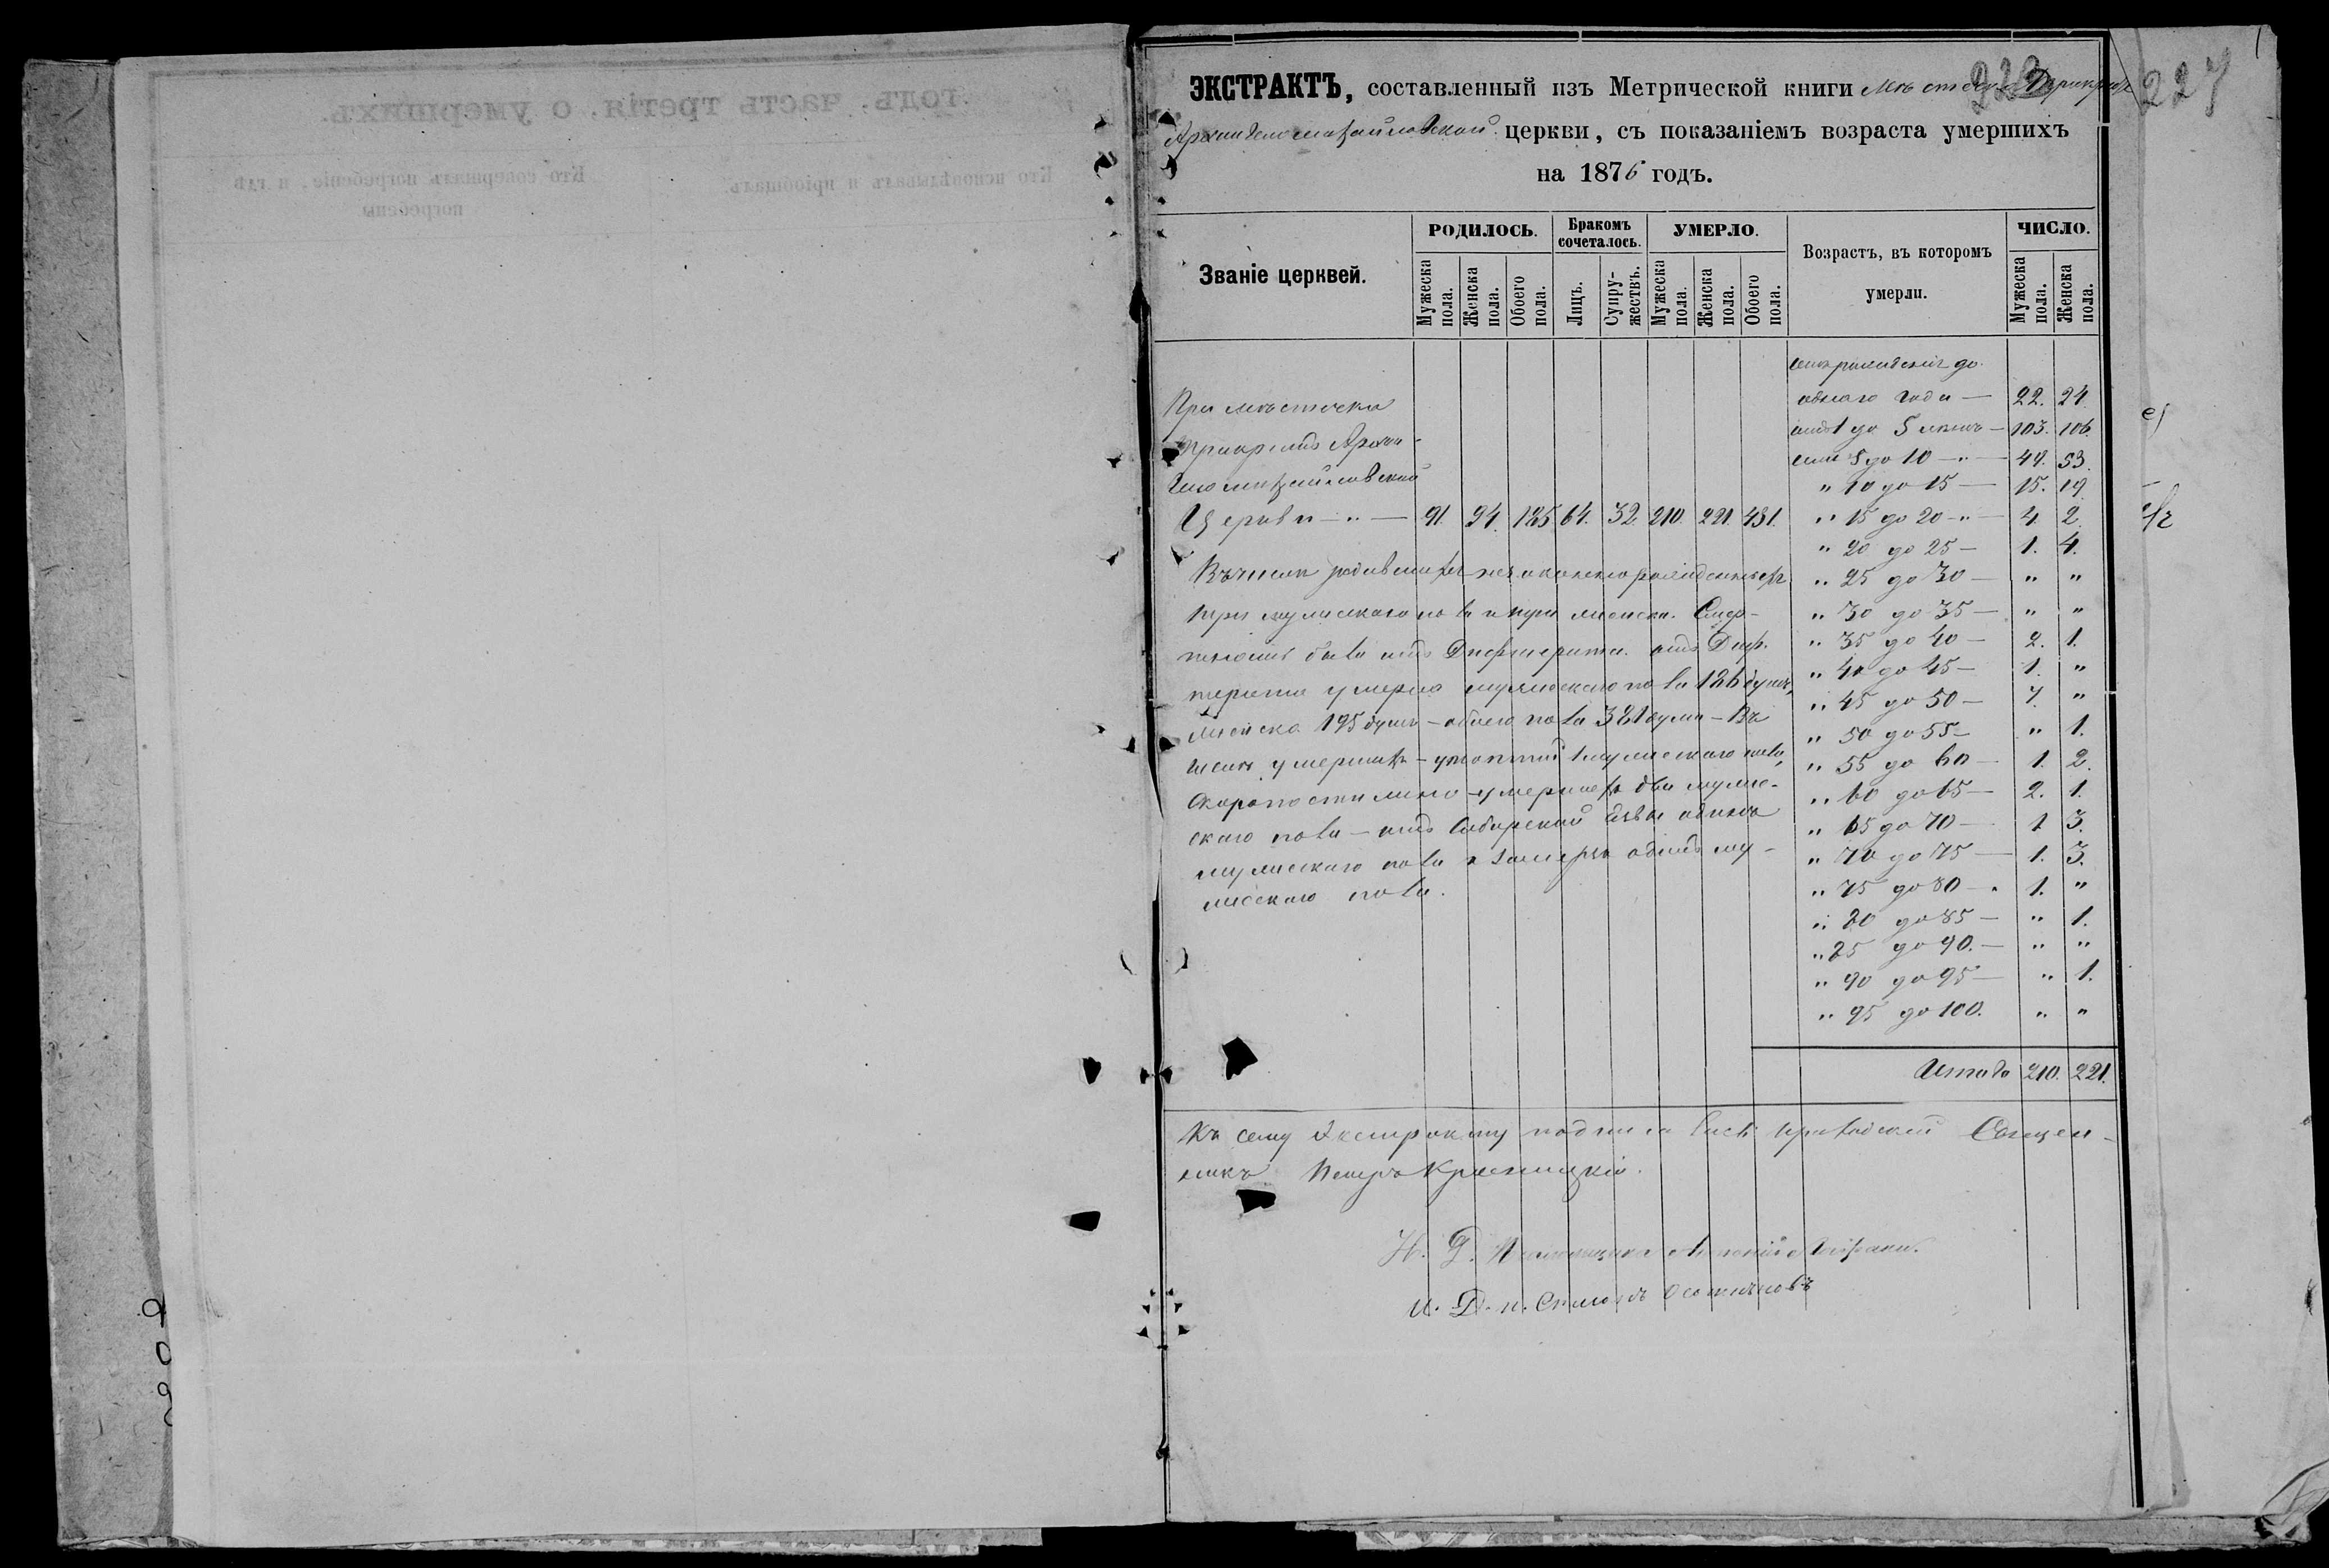 ЭКСТРАКТЪ, составленный изъ Метрической книги
Архангеломихайловской церкви, съ показаніемъ возраста умершихъ
на 1876 годъ.
227
Званіе церквей.
РОДИЛОСЬ.
Мужеска пола.
Женска пола.
Обоего пола.
Бракомъ сочеталось.
Лицъ.
Супружествъ.
УМЕРЛО.
Мужеска пола.
Женска пола.
Обоего пола.
Возрастъ, въ которомъ
умерли.
ЧИСЛО.
Мужеска пола.
Женска пола.
При мѣстечка
Архан-
гело михайловской
Церкви — „ — 91. 94. 185 64. 32. 210. 221. 431.
Въ числѣ родившихся незаконнорожденныхъ
три мужескаго пола и три женска. Смер-
тность была отъ Дифтерита. отъ Диф-
терита умерло мужескаго пола 186 душъ,
женска 195 душъ — обоего пола 381 душа — Въ
числѣ умершихъ — мужескаго пола,
скоропостижно умершихъ два муже-
скаго пола — отъ Сибирской язвы одинъ
мужескаго пола и замерзъ одинъ му-
жескаго пола.
отъ рожденія до
одного года — 22. 24.
отъ 1 до 5 лѣтъ — 103. 106.
отъ 5 до 10 — „ — 49. 53.
„ 10 до 15 — 15. 19.
„ 15 до 20 — „ — 4. 2.
„ 20 до 25 — 1. 4.
„ 25 до 30 — „ „
„ 30 до 35 — „ „
„ 35 до 40 — 2. 1.
„ 40 до 45 — 1. „
„ 45 до 50 — 7. „
„ 50 до 55 — „ 1.
„ 55 до 60 — 1. 2.
„ 60 до 65 — 2. 1.
„ 65 до 70 — 1 3.
„ 70 до 75 — 1. 3.
„ 75 до 80 — „ 1. „
„ 80 до 85 — „ 1.
„ 85 до 90. — „ „
„ 90 до 95 — „ 1.
„ 95 до 100. „ „
Итого 210. 221.
Къ сему Экстракту подписался приходскій Священ-
никъ Петръ
И. Д. Псаломщика
И. Д. п.
годъ. часть третія. о умершихъ.
Кто исповѣдывалъ и пріобщалъ.
Кто совершалъ погребеніе, и гдѣ
погребены